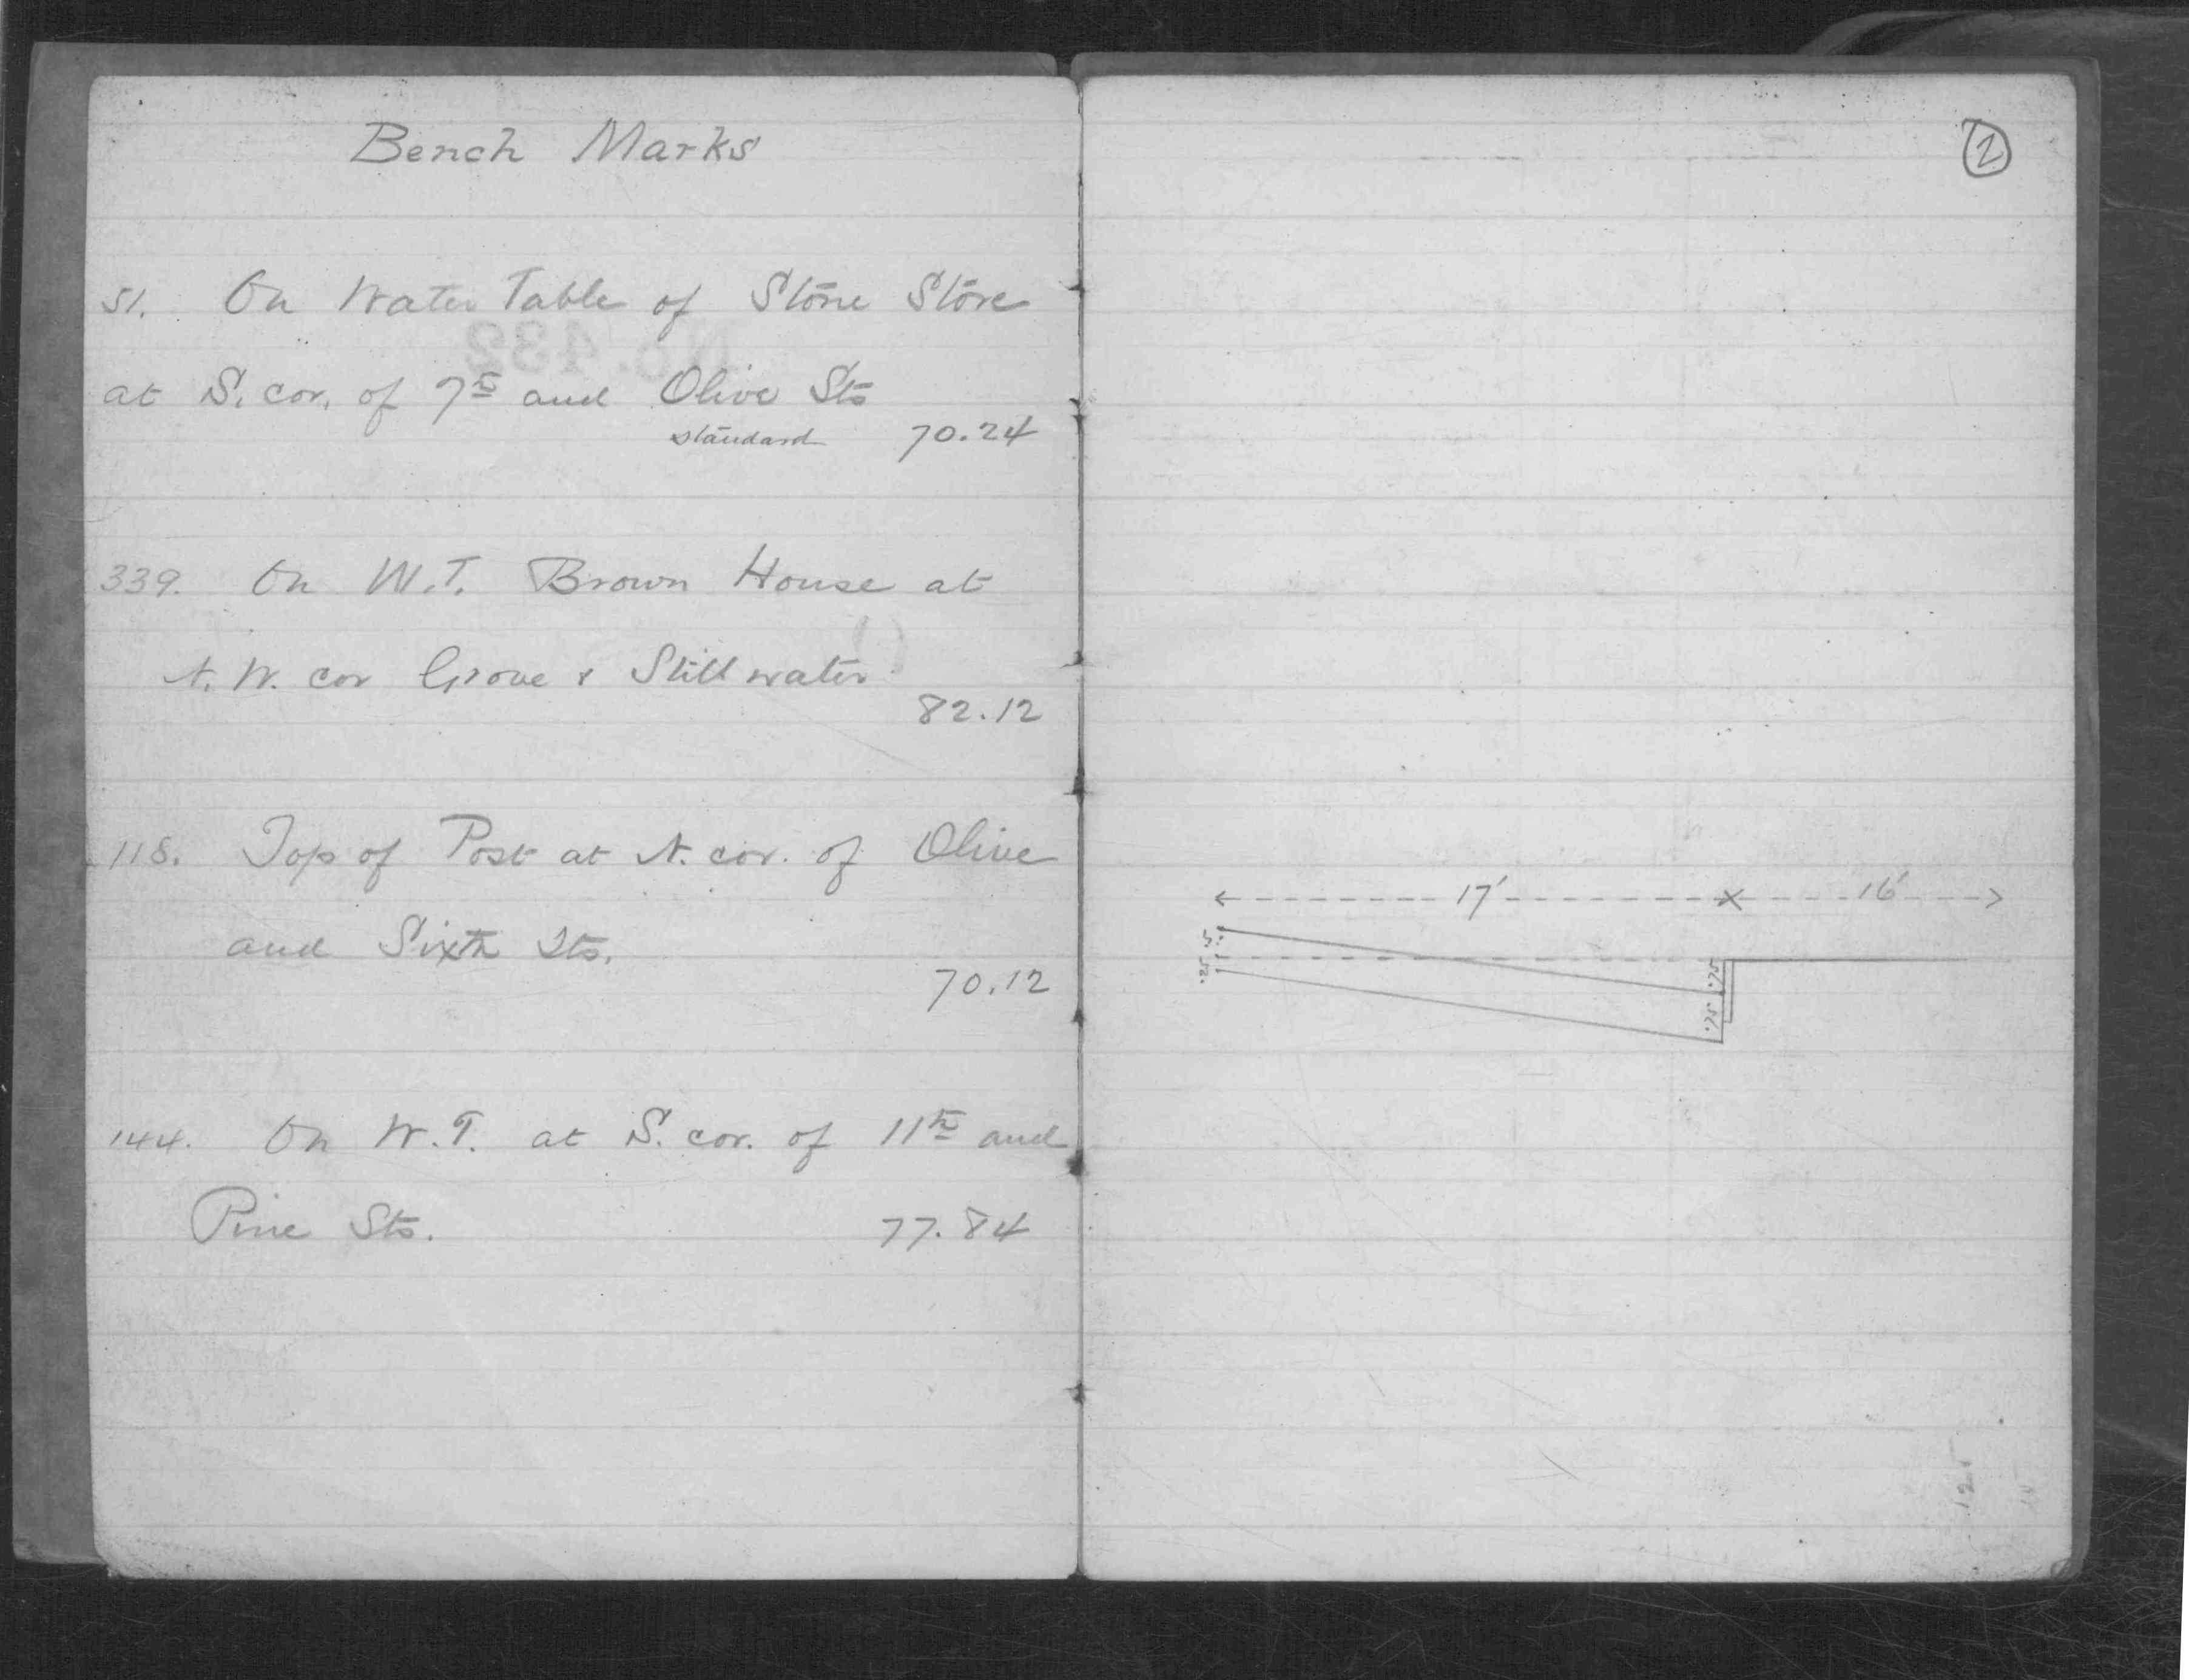 Bench Marks
51. On Water Table of Stone Store
at S. cor. of 7th and Olive Sts
standard 70.24
339. On W.T. Brown House at
N. W. cor Grove & Stillwater
82.12
118. Top of Post at N. cor. of Olive
and Sixth Sts.
70.12
144. On W.T. at S. cor. of 11th and
Pine Sts. 77.84
No. 432
17' 16'
.25
.75
.75